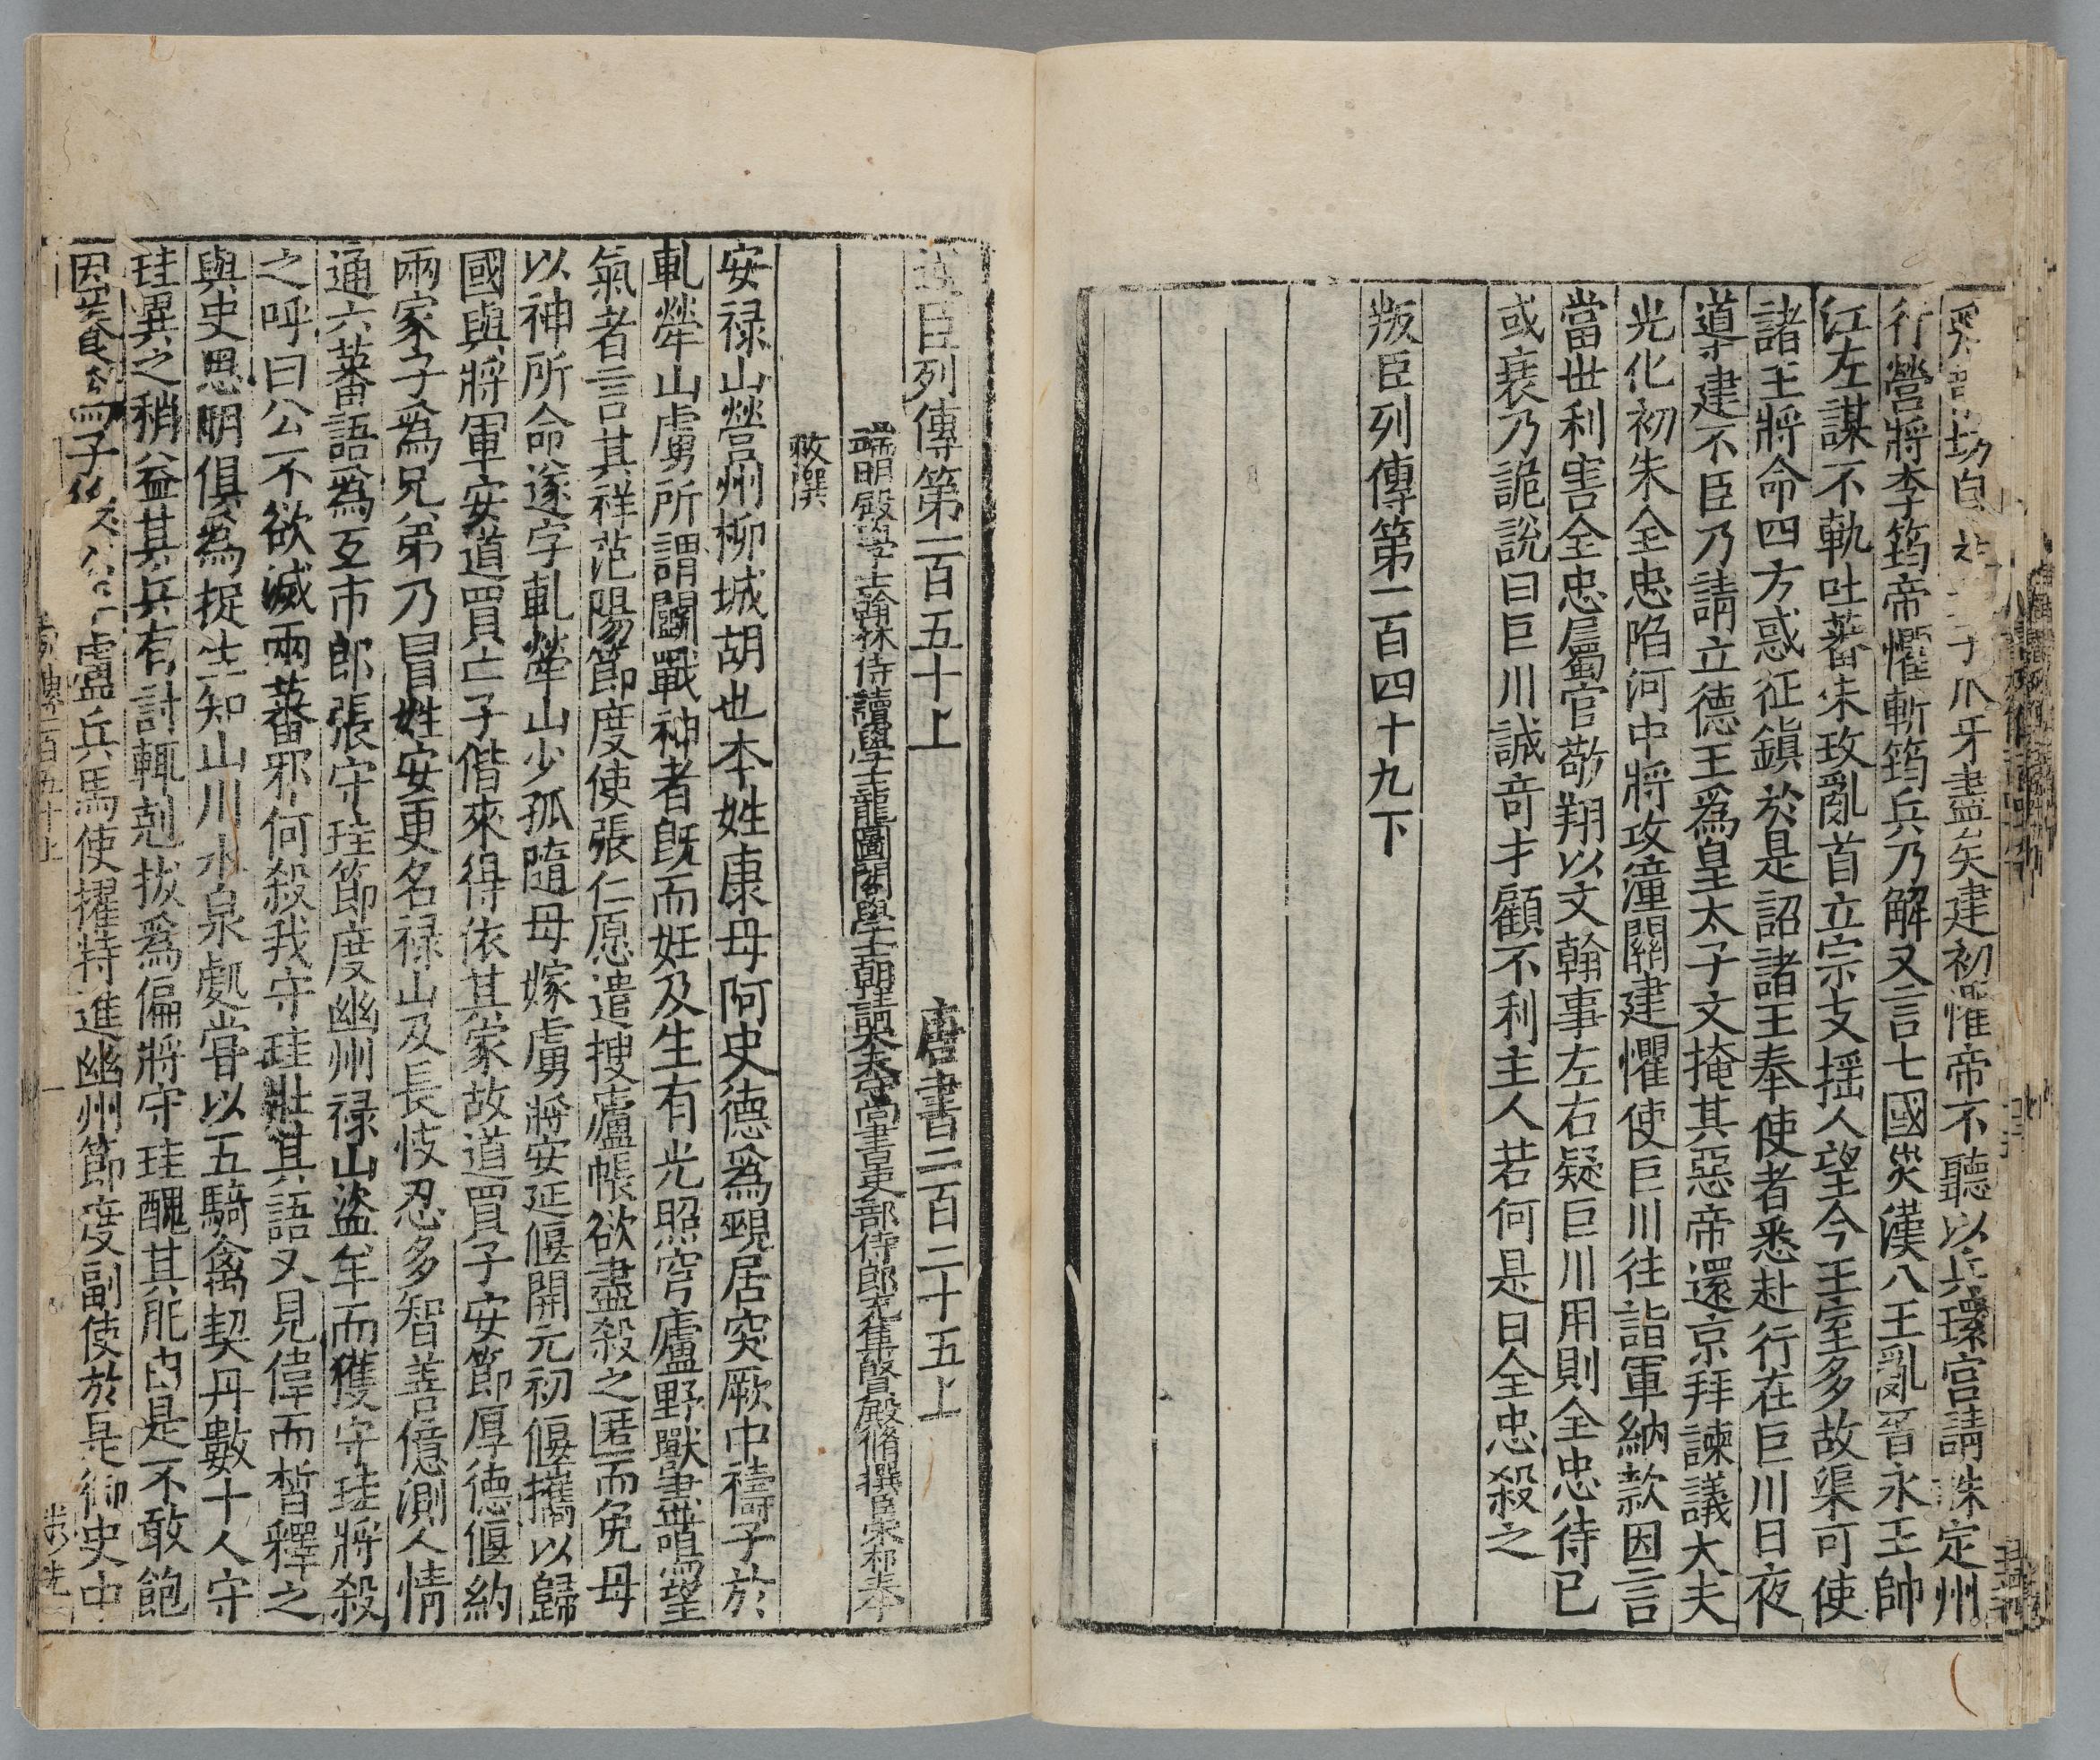 爪牙盡矣建初懼帝不聽以兵環宮請誅定州
行營將李筠帝懼斬筠兵乃解又言七國災漢八王亂晉永王帥
江左謀不軌吐蕃朱玫亂首立宗支揺人望今王室多故渠可使
諸王將命四方惑征鎮於是詔諸王奉使者悉赴行在巨川日夜
導建不臣乃請立德王爲皇太子文掩其惡帝還京拜諫議大夫
光化初朱全忠陷河中將攻潼關建懼使巨川往詣軍納款因言
當世利害全忠屬官敬翔以文翰事左右疑巨川用則全忠待已
或衰乃詭説曰巨川誠竒才顧不利主人若何是日全忠殺之
叛臣列傳第一百四十九下
逆臣列傳第一百五十上 唐書二百二十五上
端明殿學士兼翰林侍讀學士龍圖閣學士朝請大夫守尚書吏部侍郎充集賢殿脩撰臣宋祁奉
敕撰
安禄山營州柳城胡也本姓康母阿史德爲覡居突厥中禱子於
軋犖山虜所謂鬭戰神者旣而妊及生有光照穹廬野獸盡鳴望
氣者言其祥范陽節度使張仁愿遣搜廬帳欲盡殺之匿而免母
以神所命遂字軋犖山少孤隨母嫁虜將安延偃開元初偃攜以歸
國與將軍安道買亡子偕來得依其家故道買子安節厚德偃約
兩家子爲兄弟乃冒姓安更名禄山及長忮忍多智善億測人情
通六蕃語爲互市郎張守珪節度幽州禄山盜羊而獲守珪將殺
之呼曰公不欲滅兩蕃邪何殺我守珪壯其語又見偉而晳釋之
與史思明俱爲捉生知山川水泉處嘗以五騎禽契丹數十人守
珪異之稍益其兵有討輒剋拔爲偏將守珪醜其肥由是不敢飽
因養爲子 盧兵馬使擢特進幽州節度副使於是御史中